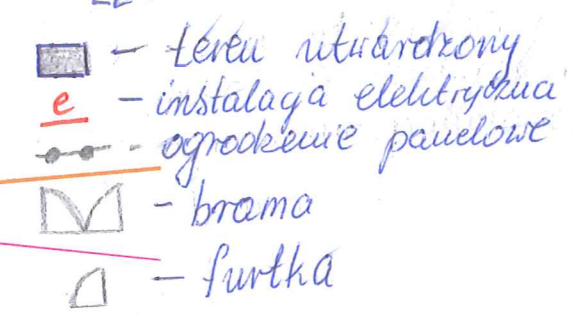 - teren utwardzony
e - instalacja elektryczna
- ogrodzenie panelowe
- brama
- furtka